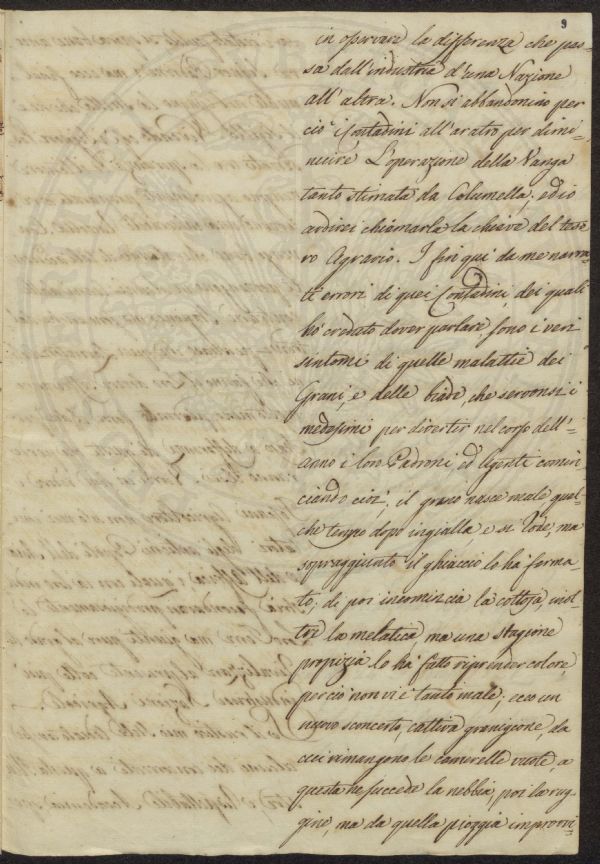 9
in osservare la differenza che pas=
sa dall'industria d'una Nazione
all'altra. Non si abbandonino per
ciò i Contadini all'aratro per dimi=
nuire L'operazione della Vanga
tanto stimata da Columella, ed io
ardirei chiamarla la chiave del teso=
ro Agrario. I fin qui da me narra=
ti errori di quei Contadini dei quali
hò creduto dover parlare, sono i veri
sintomi di quelle malattie dei
Grani, e delle biade, che servonsi i
medesimi per divertir nel corso dell'
anno i loro Padroni, ed Agenti comin=
ciando cioè, il grano nasce male qual=
che tempo dopo ingialla e si rode, ma
sopraggiunto il ghiaccio lo hà ferma=
to; di poi incomincia la
la ma una stagione
propizia lo hà fatto riprender colore,
perciò non vi è tanto male; ecco un
nuovo sconcerto, cattiva granigione, da
cui rimangono le camerelle vuote, a
questa ne succede la nebbia, poi la rug=
gine, ma da quella pioggia improvi=